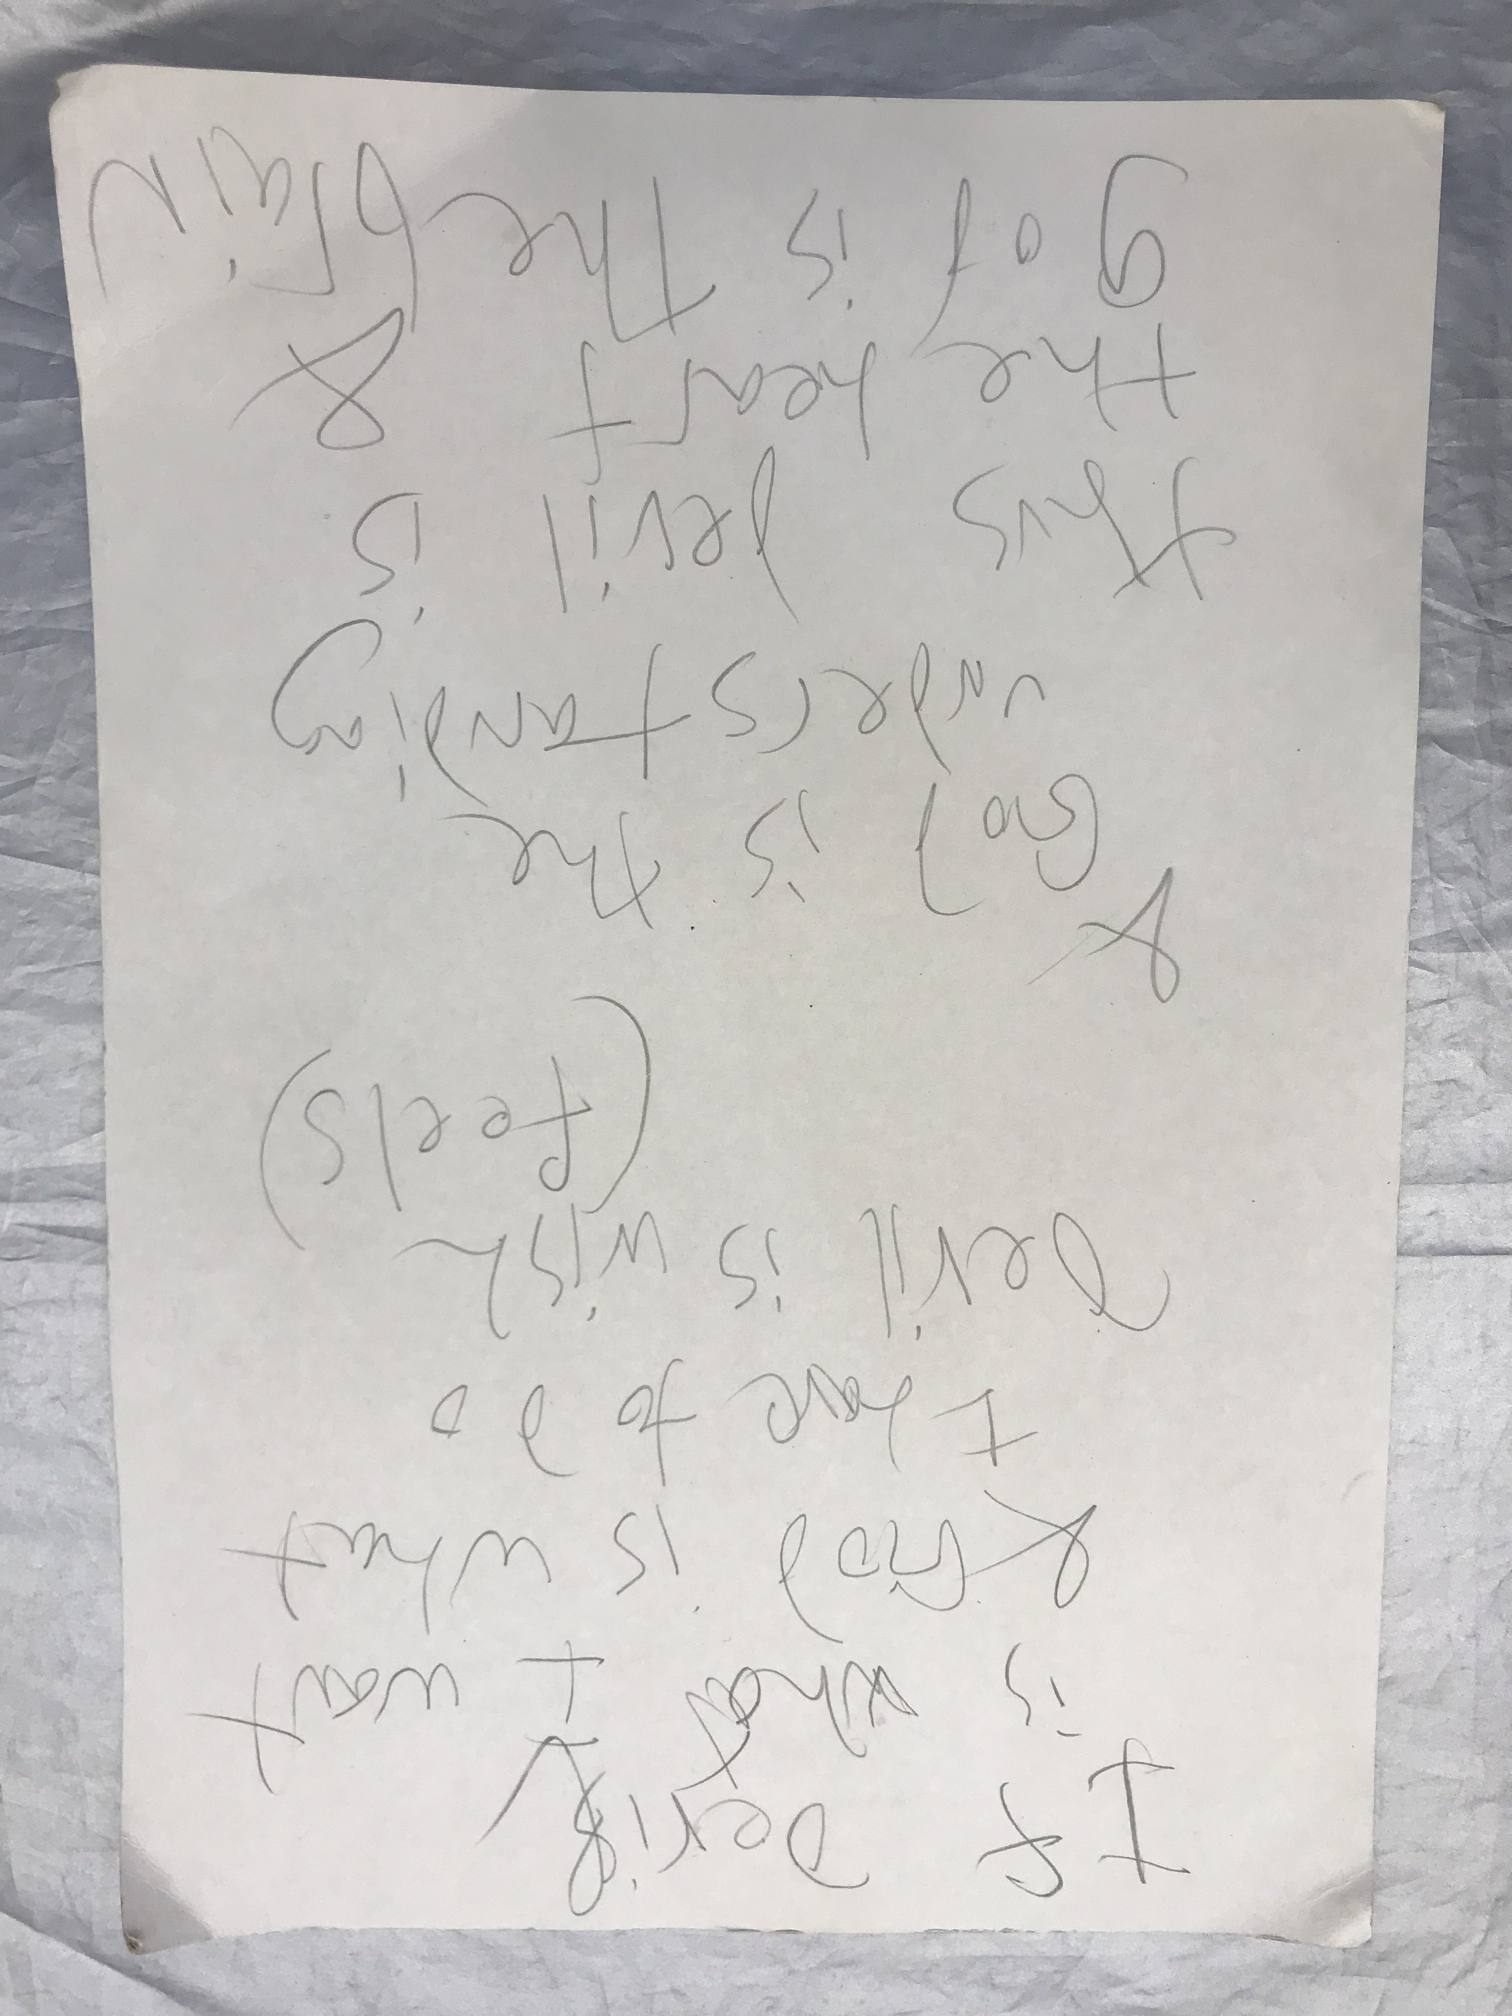 If Devil
is what I want
& God is what
I have to do
Devil is wish
(feels)
&
God is the
understanding
thus Devil is
the heart &
god is the brain